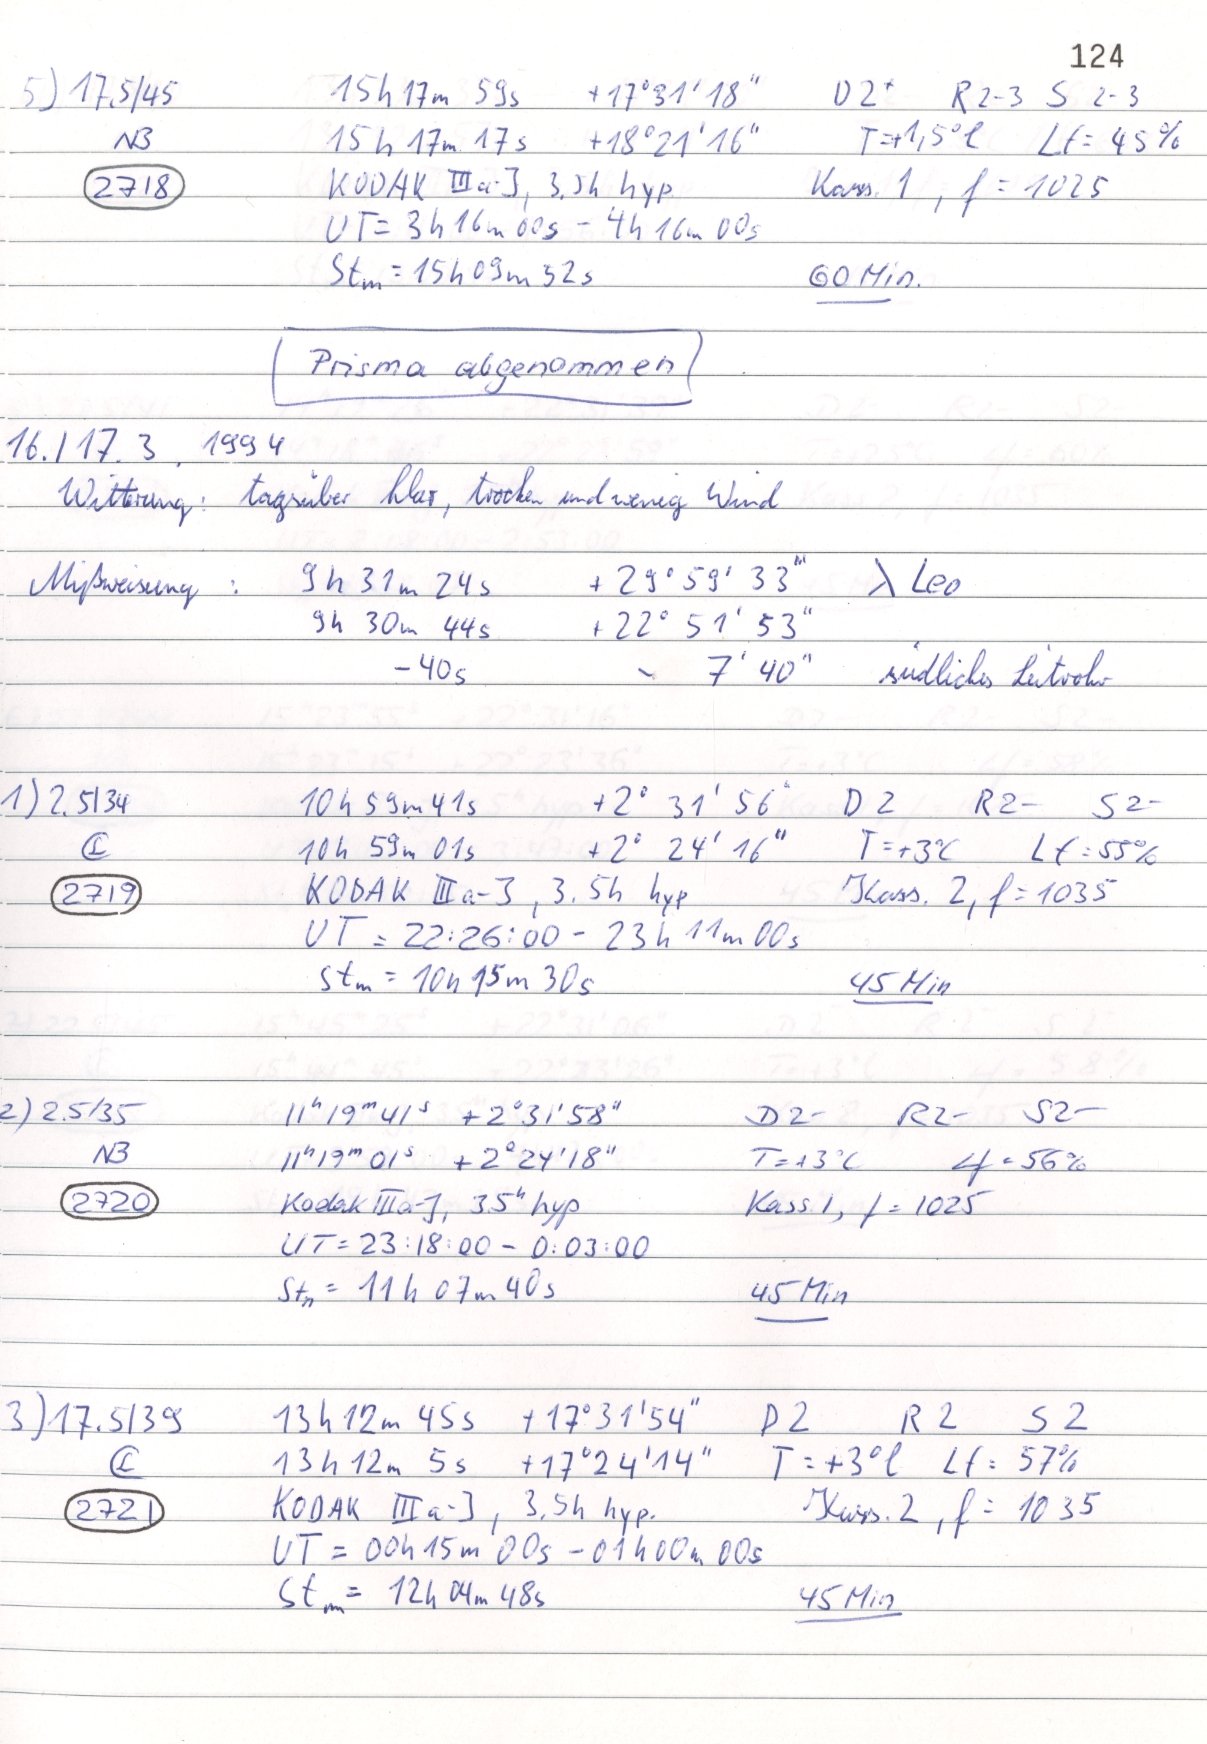 124
5) 17.5/45 15h 17m 59s +17°31'18" D2+ R2-3 S 2-3
NB 15h 17m 17s +18°21'16" T=+1,5°C Lf= 45%
2718 KODAK IIIa-J, 3.5h hyp Kass. 1, f = 1025
UT= 3h 16m 00s - 4h 16m 00s
Stm = 15h 09m 32s 60 Min.
Prisma abgenommen
16./17.3. 1994
Witterung: tagsüber klar, trocken und wenig Wind
Mißweisung: 9h 31m 24s +29°59'33" λ Leo
9h 30m 44s +22°51'53"
-40s - 7'40" südliches Leitrohr
1) 2.5/34 10h 59m 41s +2° 31' 56" D2 R2- S2-
10h 59m 01s +2° 24' 16" T=+3°C Lf=55%
2719 KODAK IIIa-J, 3.5h hyp Kass. 2, f=1035
UT = 22:26:00 - 23h 11m 00s
Stm = 10h 15m 30s 45 Min
2) 2.5/35 11h 19m 41s +2°31'58" D2- R2- S2-
NB 11h 19m 01s +2°24'18" T=+3°C Lf=56%
2720 Kodak IIIa-J, 3.5h hyp Kass. 1, f = 1025
UT = 23:18:00 - 0:03:00
Stm = 11h 07m 40s 45 Min
3) 17.5/39 13h 12m 45s +17°31'54" D2 R2 S2
13h 12m 5s +17°24'14" T=+3°C Lf= 57%
2721 KODAK IIIa-J, 3.5h hyp. Kass. 2, f = 1035
UT = 00h 15m 00s - 01h 00m 00s
Stm = 12h 04m 48s 45 Min